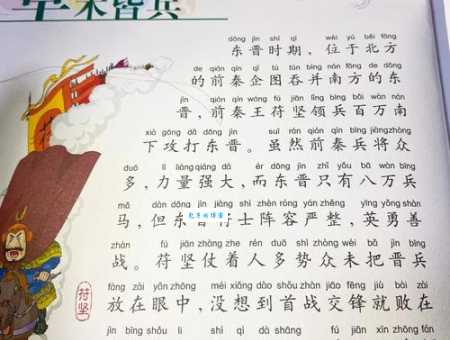 草木皆兵
dōng jìn shí qī wèi yú běi fāng
东晋时期，位于北方
de qián qín qǐ tú tūn bìng nán fāng de dōng
的前秦企图吞并南方的东
jìn qián qín wáng fú jiān lǐng bīng bǎi wàn nán
晋，前秦王苻坚领兵百万南
xià gōng dǎ dōng jìn suī rán qián qín bīng jiàng zhòng
下攻打东晋。虽然前秦兵将众
duō lì liàng qiáng dà ér dōng jìn zhǐ yǒu bā wàn bīng
多，力量强大，而东晋只有八万兵
mǎ dàn dōng jìn jiàng shì zhèn róng yán zhěng yīng yǒng shàn
马，但东晋将士阵容严整，英勇善
zhàn fú jiān zhàng zhe rén duō shì zhòng wèi bǎ jìn bīng
战。苻坚仗着人多势众未把晋兵
fàng zài yǎn zhōng méi xiǎng dào shǒu zhàn jiāo fēng jiù bài zài
放在眼中，没想到首战交锋就败在
jìn bīng shǒu lǐ shì qì dà shāng fú jiān
苻坚